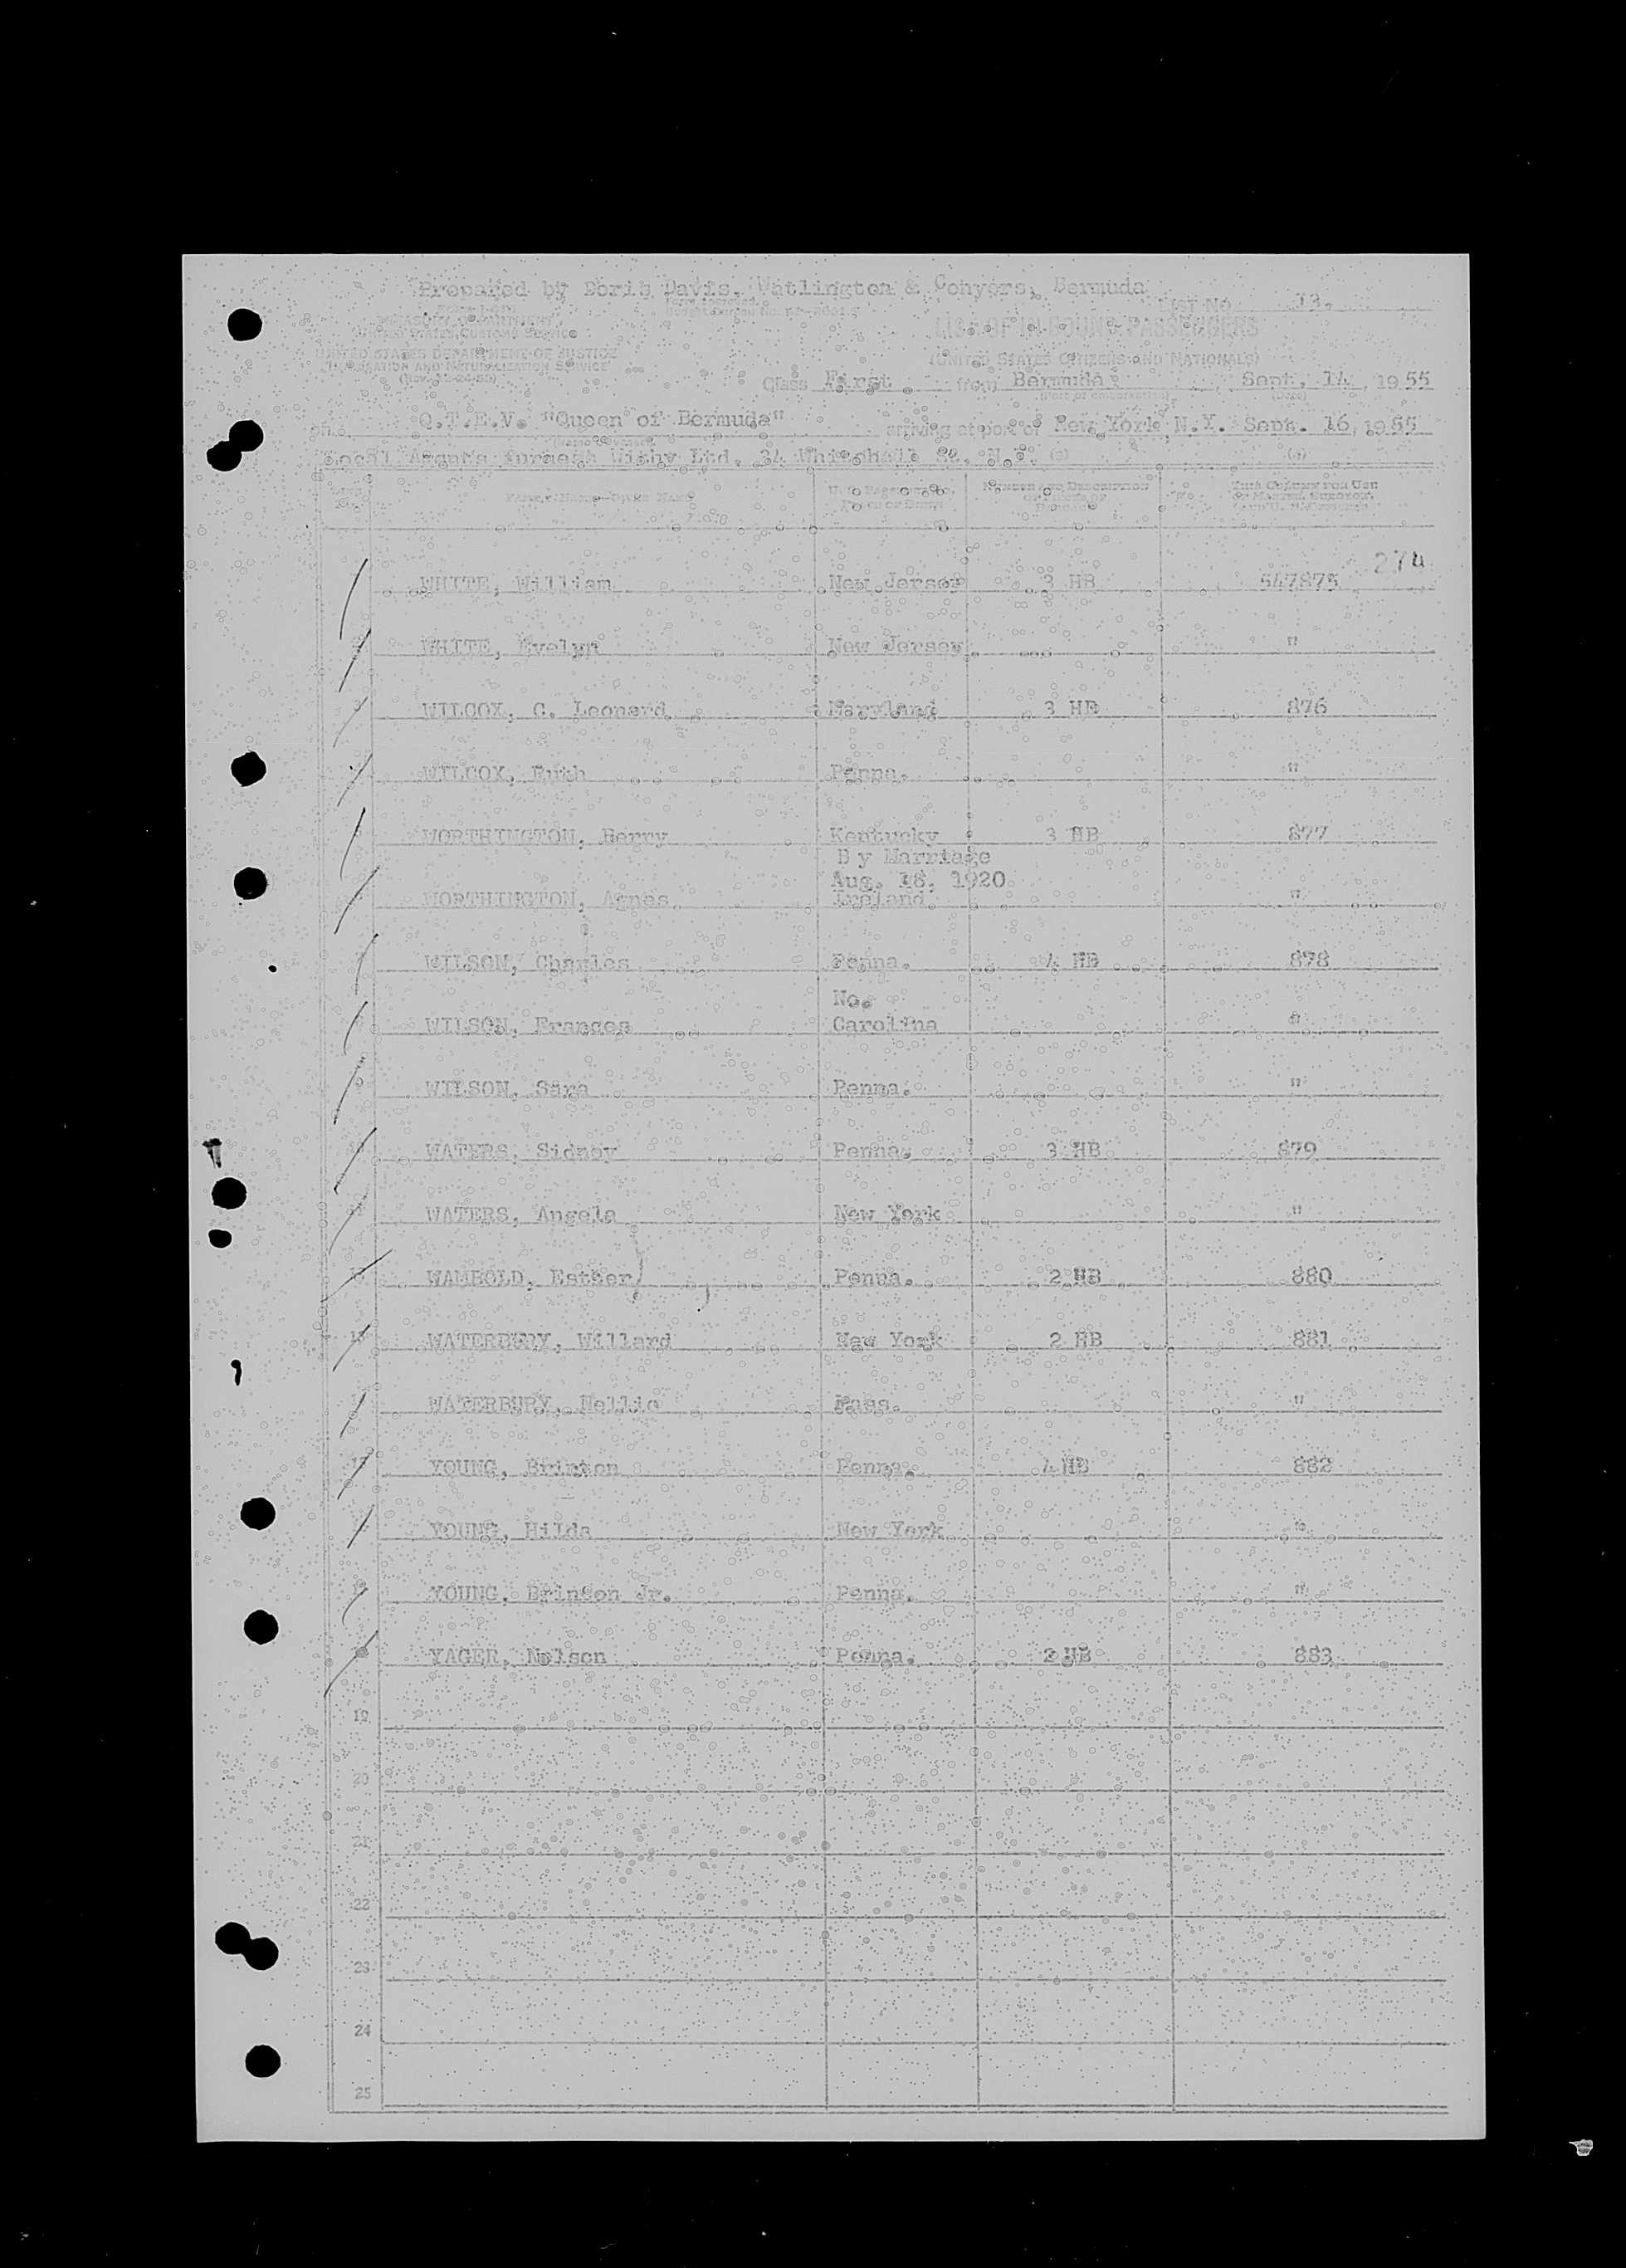 Prepared by Doris Davis, Watlington & Conyers, Bermuda
LIST NO. 13.
TREASURY DEPARTMENT
UNITED STATES CUSTOMS SERVICE
LIST OF IN-BOUND PASSENGERS
UNITED STATES DEPARTMENT OF JUSTICE
IMMIGRATION AND NATURALIZATION SERVICE
(UNITED STATES CITIZENS AND NATIONALS)
Class First from Bermuda Sept. 14, 1955
(Port of embarkation) (Date)
on Q.T.E.V. "Queen of Bermuda" arriving at port of New York, N.Y. Sept. 16, 1955
Local Agents Furness Withy Ltd. 34 Whitehall St. N.Y. (3) (4)
FAMILY NAME—GIVEN NAME
NUMBER AND DESCRIPTION OF PIECES OF BAGGAGE
THIS COLUMN FOR USE OF MASTER, SURGEON, AND U. S. OFFICERS
274
WHITE, William New Jersey 3 HB 547875
WHITE, Evelyn New Jersey "
WILCOX, C. Leonard Maryland 3 HB 876
WILCOX, Ruth Penna. "
WORTHINGTON, Berry Kentucky 3 HB 877
B y Marriage
Aug. 18, 1920
WORTHINGTON, Agnes Ireland "
WILSON, Charles Penna. 4 HB 878
No.
WILSON, Frances Carolina "
9 WILSON, Sara Penna. "
10 WATERS, Sidney Penna. 3 HB 879
11 WATERS, Angela New York "
WAMBOLD, Esther Penna. 2 HB 880
13 WATERBURY, Willard New York 2 HB 881
WATERBURY, Nellie Mass. "
15 YOUNG, Brinton Penna. 4 HB 882
YOUNG, Hilda New York "
YOUNG, Brinton Jr. Penna. "
YAGER, Nelson Penna. 2 HB 883
19
20
21
22
23
24
25